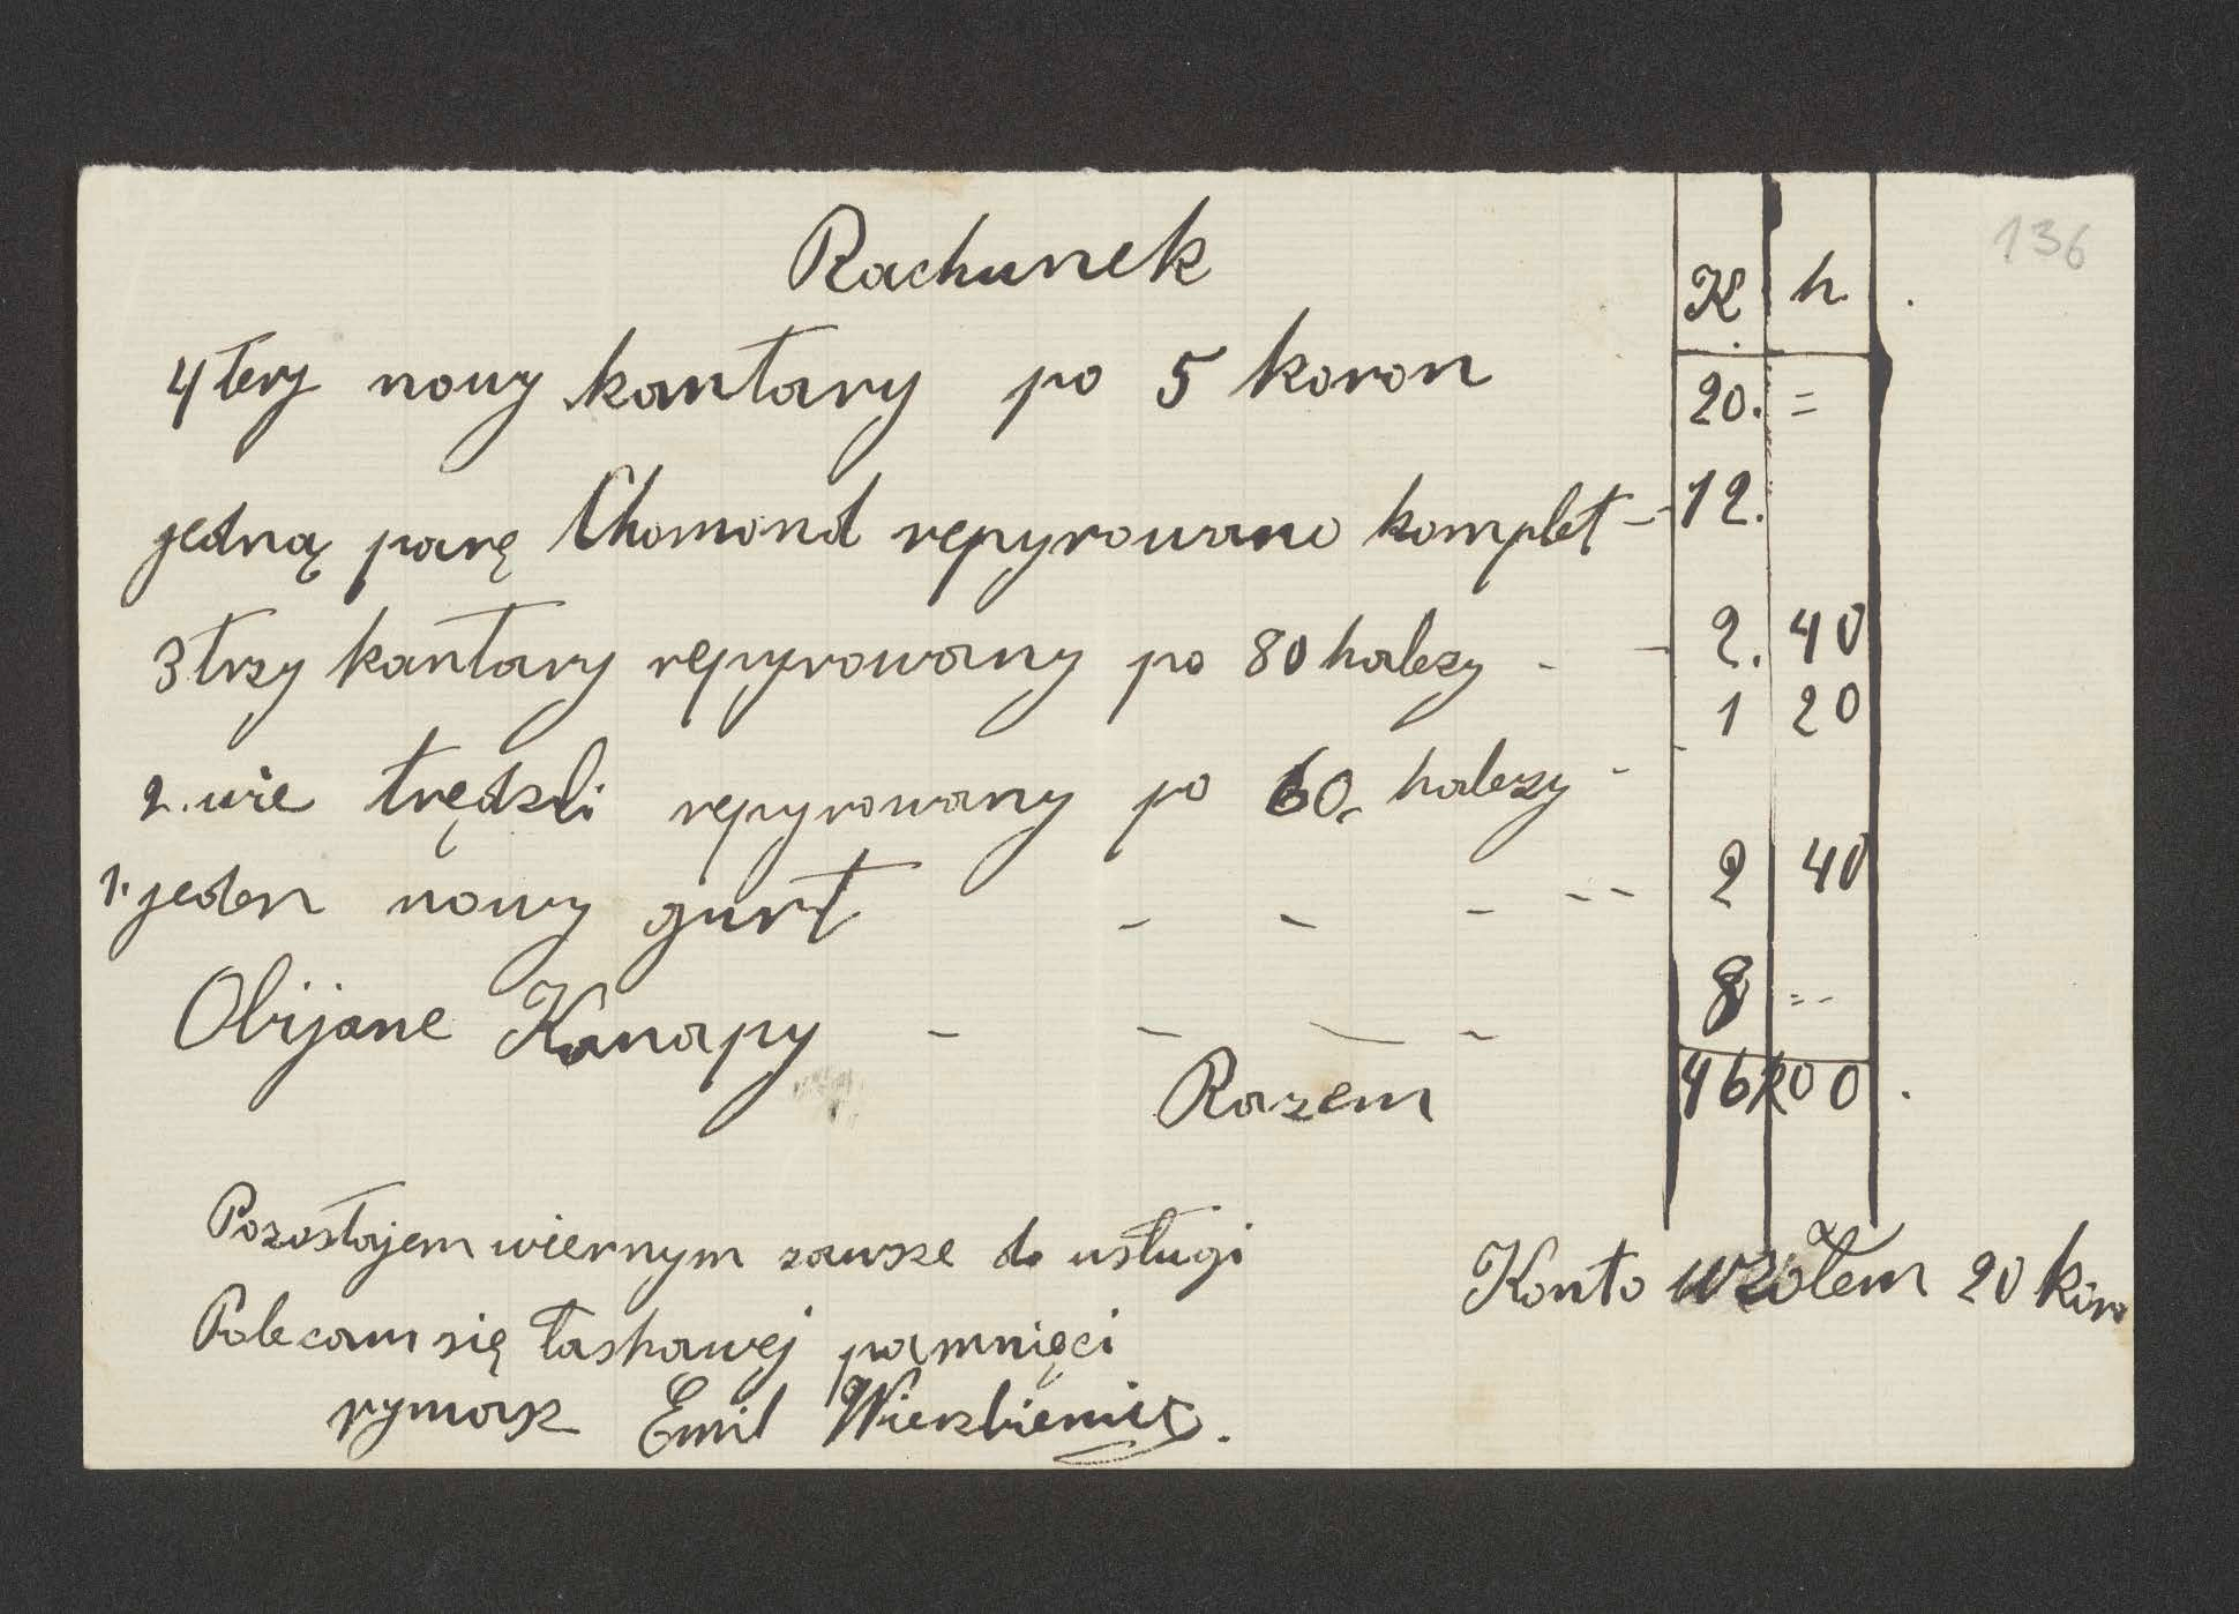 136
Rachunek
K h
4tery nowy kantary po 5 koron 20. =
jedną parę Chomond repyrowano komplet - 12.
3 trzy kantary repyrowany po 80 halezy - - 2. 40
2. wie trędzli repyrowany po 60. halezy - 1 20
1. jeden nowy gurt - - - - - 2 40
Obijane Kanapy - - - - 8 =
Razem 46 00
Pozostajem wiernym zawsze do usługi
Konto wzółem 20 kor
Polecam się łaskawej pamnięci
rymasz Emil